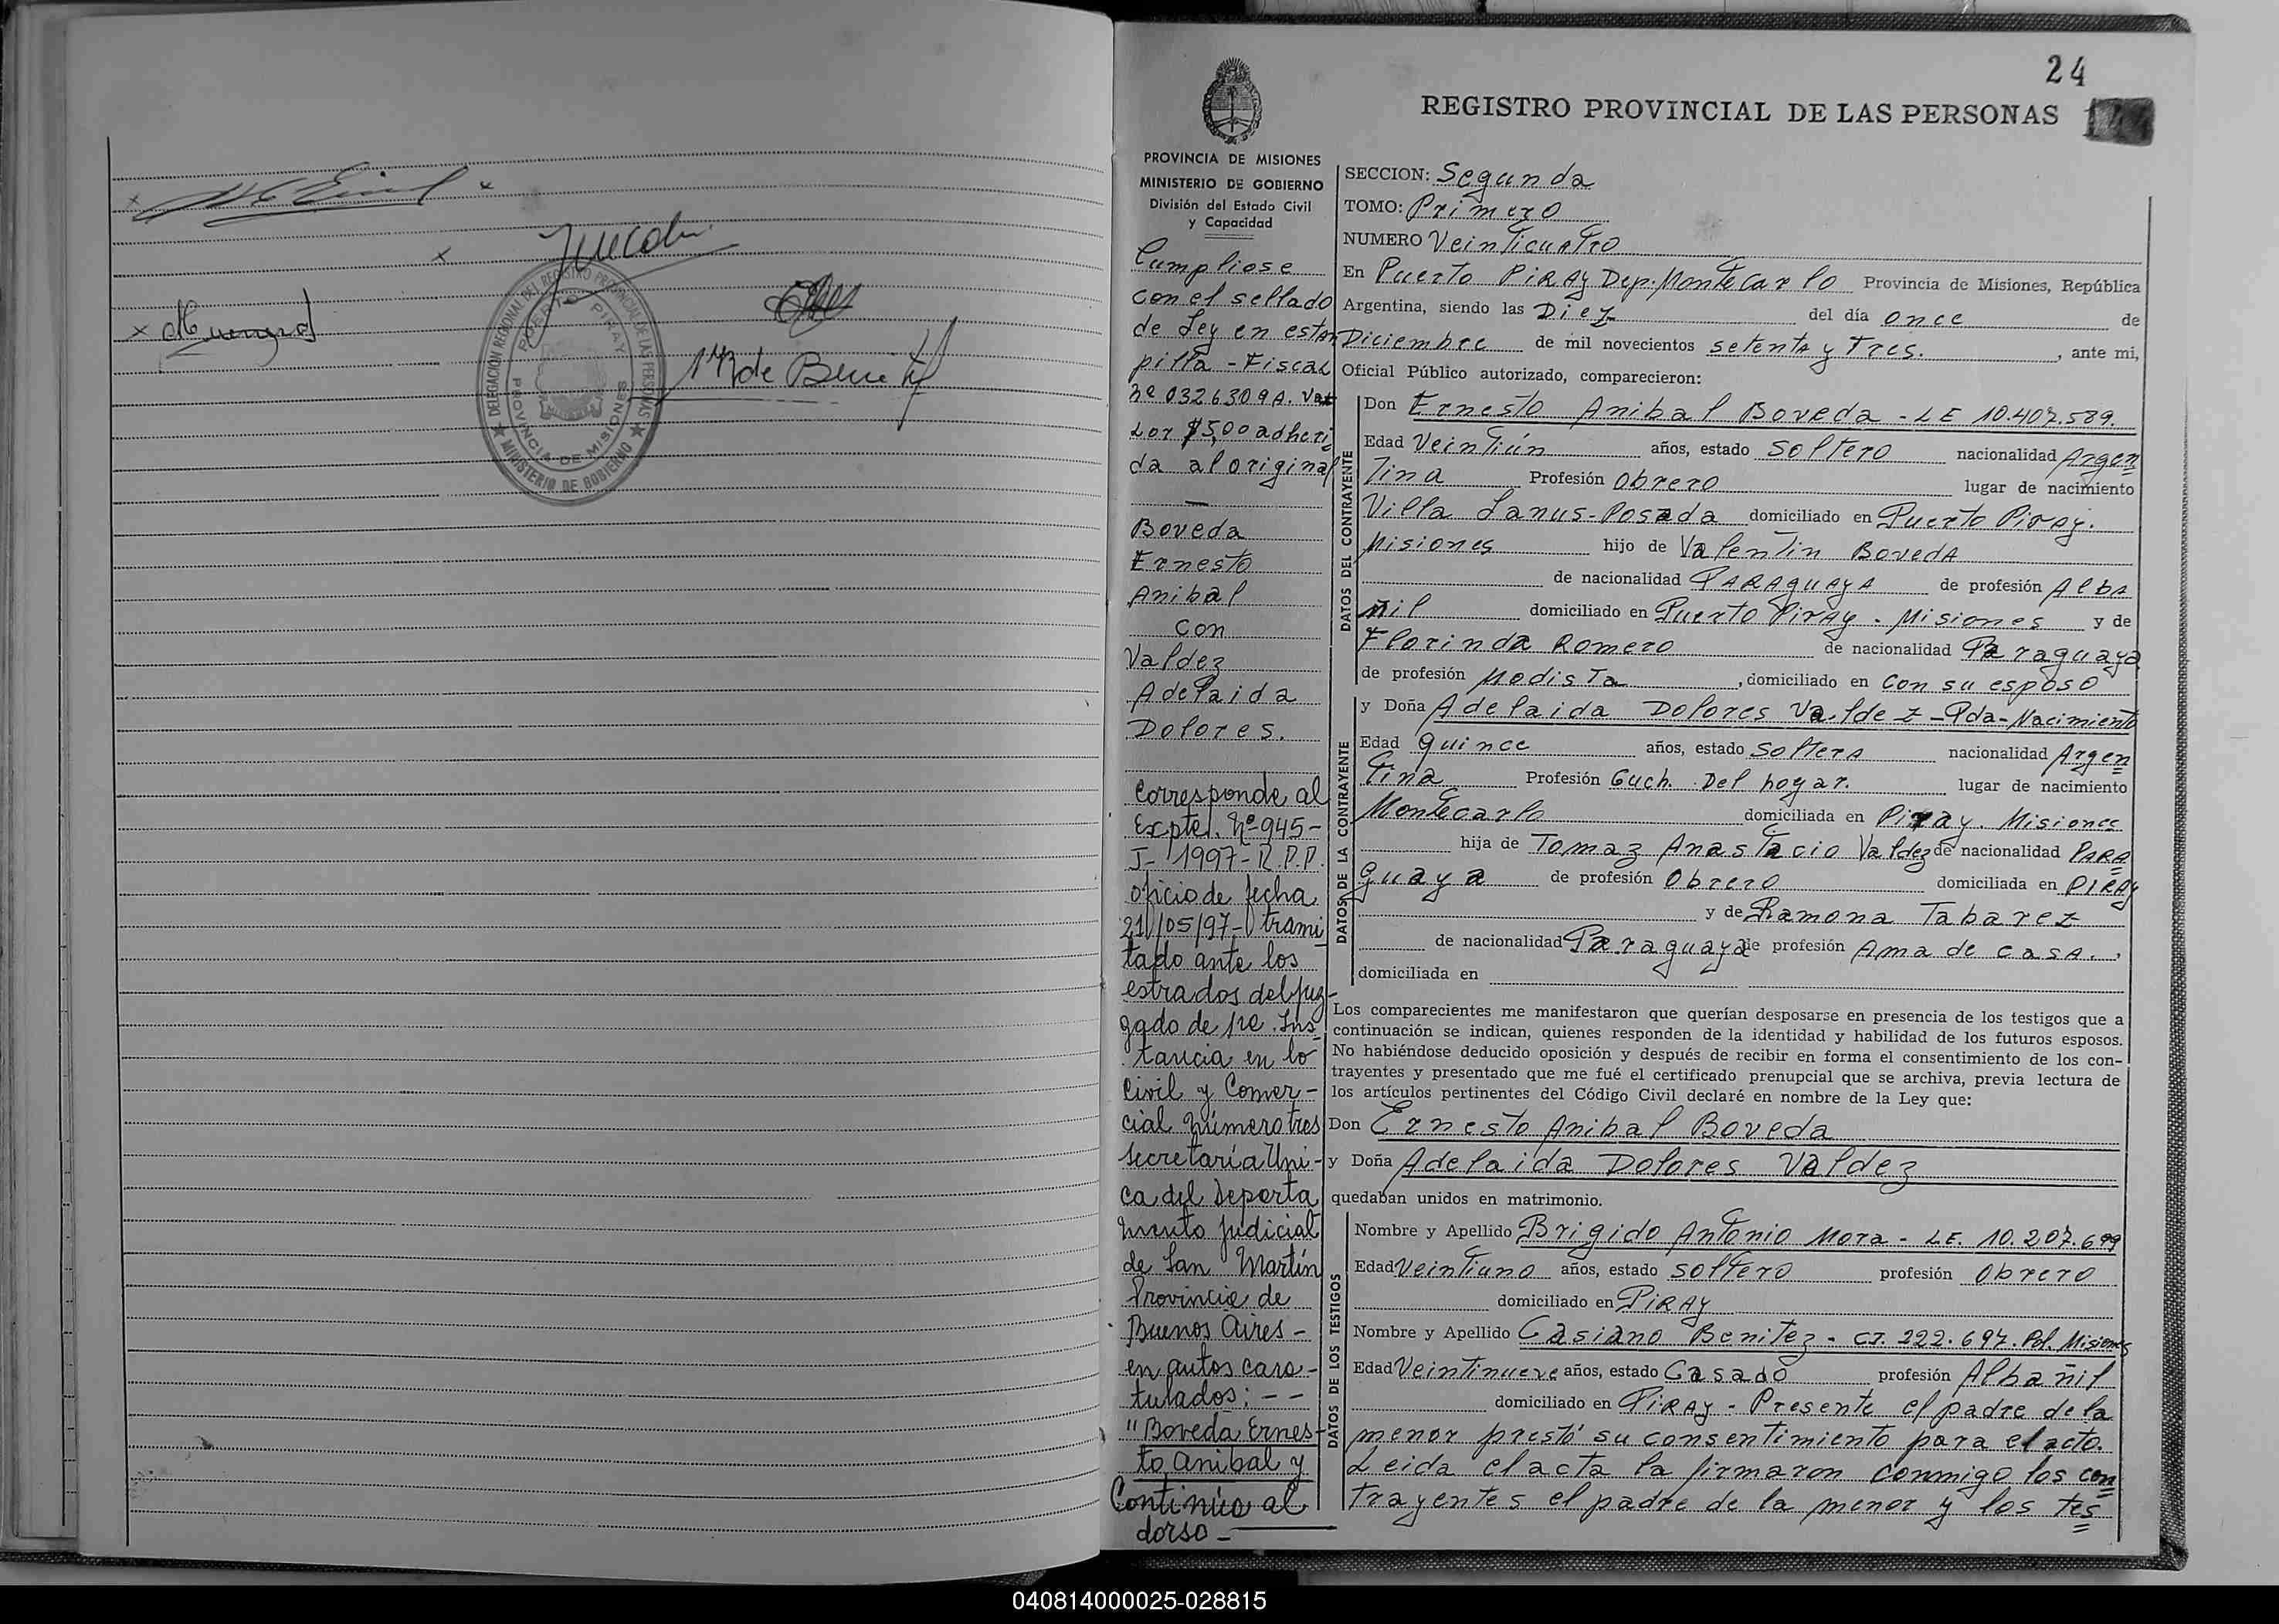 DELEGACION REGIONAL DEL REGISTRO PROVINCIAL DE LAS PERSONAS
PUERTO PIRAY
PROVINCIA DE MISIONES
★ MINISTERIO DE GOBIERNO ★
24
REGISTRO PROVINCIAL DE LAS PERSONAS
PROVINCIA DE MISIONES
MINISTERIO DE GOBIERNO
División del Estado Civil
y Capacidad
Cumpliose
con el sellado
de Ley en estam
pilla - Fiscal
Nº 0326309A. Va
lor $5,00 adheri
da al original
—
Boveda
Ernesto
Anibal
con
Valdez
Adelaida
Dolores.
Corresponde al
Expte. Nº 945-
J- 1997- R.P.P.
oficio de fecha
21/05/97- trami
tado ante los
estrados del juz-
gado de 1ra. Ins-
tancia en lo
Civil y Comer-
cial número tres
Secretaría Uni-
ca del Departa
mento judicial
de San Martín
Provincia de
Buenos Aires -
en autos cara-
tulados: - -
"Boveda Ernes-
to Anibal y
Continúa al
dorso -
SECCION: Segunda
TOMO: Primero
NUMERO Veinticuatro
En Puerto Piray Dep. Montecarlo Provincia de Misiones, República
Argentina, siendo las Diez del día once de
Diciembre de mil novecientos setenta y Tres. , ante mi,
Oficial Público autorizado, comparecieron:
DATOS DEL CONTRAYENTE
Don Ernesto Anibal Boveda - LE 10.407.589.
Edad Veintiún años, estado Soltero nacionalidad Argen
tina Profesión Obrero lugar de nacimiento
Villa Lanus-Posada domiciliado en Puerto Piray.
Misiones hijo de Valentin Boveda
de nacionalidad Paraguaya de profesión Alba
ñil domiciliado en Puerto Piray. Misiones y de
Florinda Romero de nacionalidad Paraguaya
de profesión Modista , domiciliado en con su esposo
DATOS DE LA CONTRAYENTE
y Doña Adelaida Dolores Valdez - Pda-Nacimiento
Edad quince años, estado soltera nacionalidad Argen
tina Profesión Quch. Del hogar. lugar de nacimiento
Montecarlo domiciliada en Piray. Misiones
hija de Tomaz Anastacio Valdez de nacionalidad Para
guaya de profesión Obrero domiciliada en Piray
y de Ramona Tabarez
de nacionalidad Paraguaya de profesión Ama de casa. ,
domiciliada en
Los comparecientes me manifestaron que querían desposarse en presencia de los testigos que a
continuación se indican, quienes responden de la identidad y habilidad de los futuros esposos.
No habiéndose deducido oposición y después de recibir en forma el consentimiento de los con-
trayentes y presentado que me fué el certificado prenupcial que se archiva, previa lectura de
los artículos pertinentes del Código Civil declaré en nombre de la Ley que:
Don Ernesto Anibal Boveda
y Doña Adelaida Dolores Valdez
quedaban unidos en matrimonio.
DATOS DE LOS TESTIGOS
Nombre y Apellido Brigido Antonio Mora - LE. 10.207.699
Edad Veintiuno años, estado soltero profesión Obrero
domiciliado en Piray
Nombre y Apellido Casiano Benitez - CI. 222.697. Pol. Misiones
Edad Veintinueve años, estado Casado profesión Albañil
domiciliado en Piray - Presente el padre de la
menor prestó su consentimiento para el acto.
Leida el acta la firmaron conmigo los con
trayentes el padre de la menor y los tes
040814000025-028815